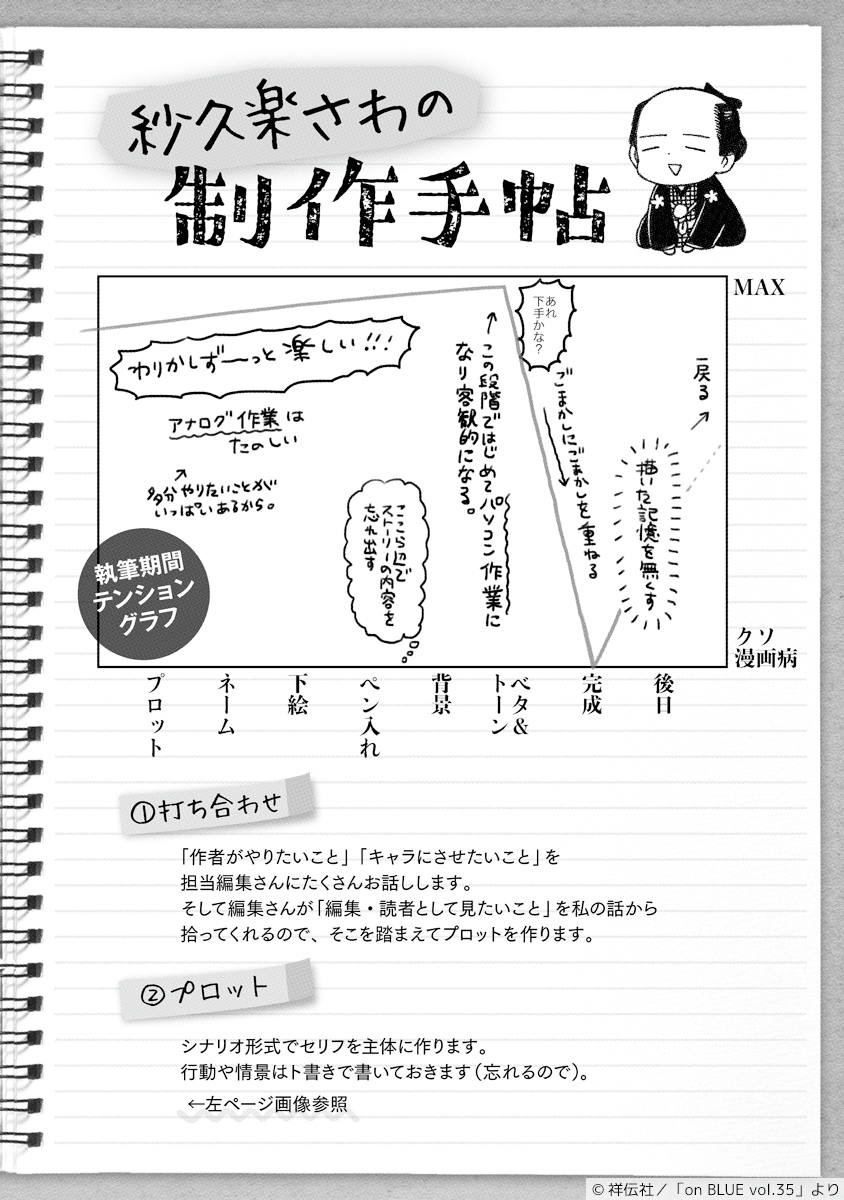 紗久楽さわの
制作手帖
MAX
わりかしず――っと楽しい!!!
アナログ作業は
たのしい
↗
多分やりたいことが
いっぱいあるから。
ここら辺で
ストーリーの内容を
忘れ出す
↑
この段階ではじめてパソコン作業に
なり客観的になる。
あれ
下手かな?
ごまかしにごまかしを重ねる
描いた記憶を無くす
戻る
執筆期間
テンション
グラフ
クソ
漫画病
プロット
ネーム
下絵
ペン入れ
背景
ベタ&
トーン
完成
後日
①打ち合わせ
「作者がやりたいこと」「キャラにさせたいこと」を
担当編集さんにたくさんお話しします。
そして編集さんが「編集・読者として見たいこと」を私の話から
拾ってくれるので、そこを踏まえてプロットを作ります。
②プロット
シナリオ形式でセリフを主体に作ります。
行動や情景はト書きで書いておきます(忘れるので)。
←左ページ画像参照
© 祥伝社/「on BLUE vol.35」より